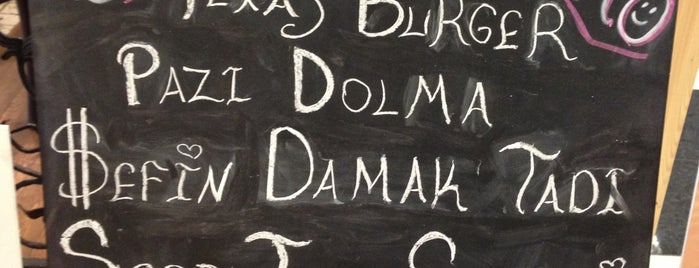 TEXAS BURGER
PAZI DOLMA
$EFİN DAMAK TADI